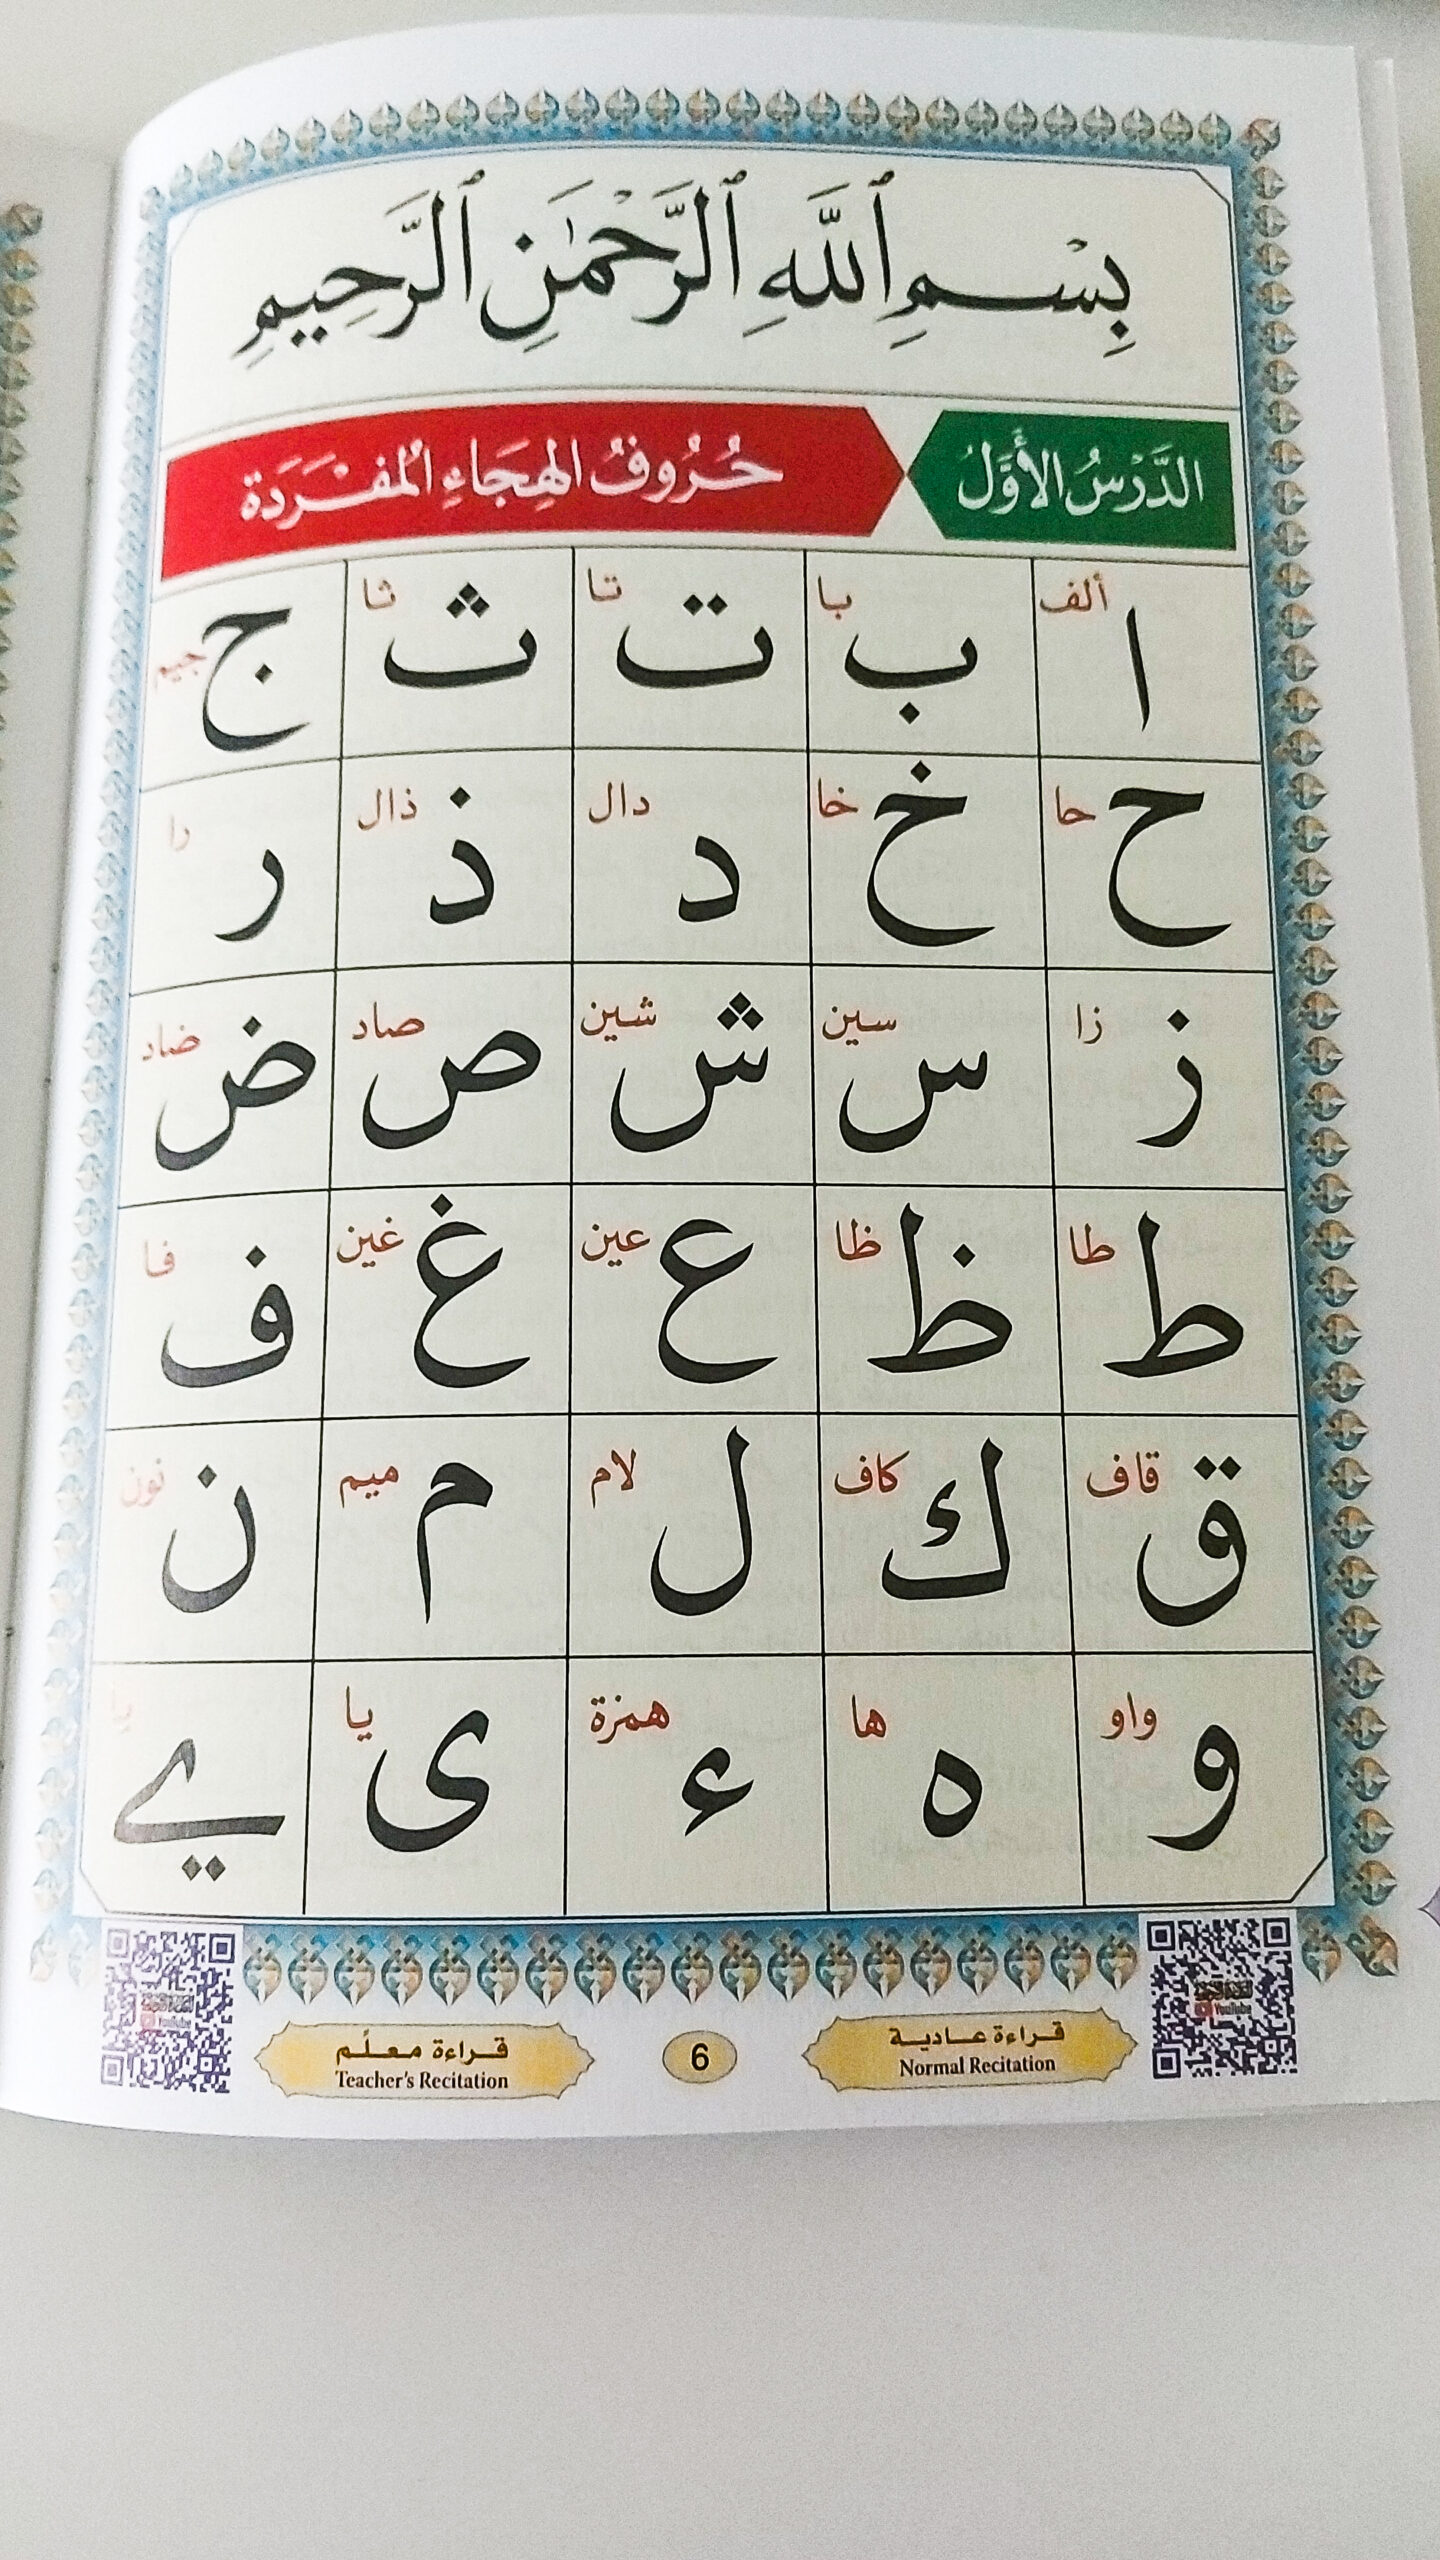 بِسْمِ ٱللَّهِ ٱلرَّحْمَٰنِ ٱلرَّحِيمِ
الدَّرْسُ الأَوَّلُ حُرُوفُ الهِجَاءِ المُفْرَدَة
ألف ا با ب تا ت ثا ث جيم ج
حا ح خا خ دال د ذال ذ را ر
زا ز سين س شين ش صاد ص ضاد ض
طا ط ظا ظ عين ع غين غ فا ف
قاف ق كاف ك لام ل ميم م نون ن
واو و ها ه همزة ء يا ى يا ے
قراءة عادية 6 قراءة معلّم
Normal Recitation Teacher's Recitation
YouTube YouTube